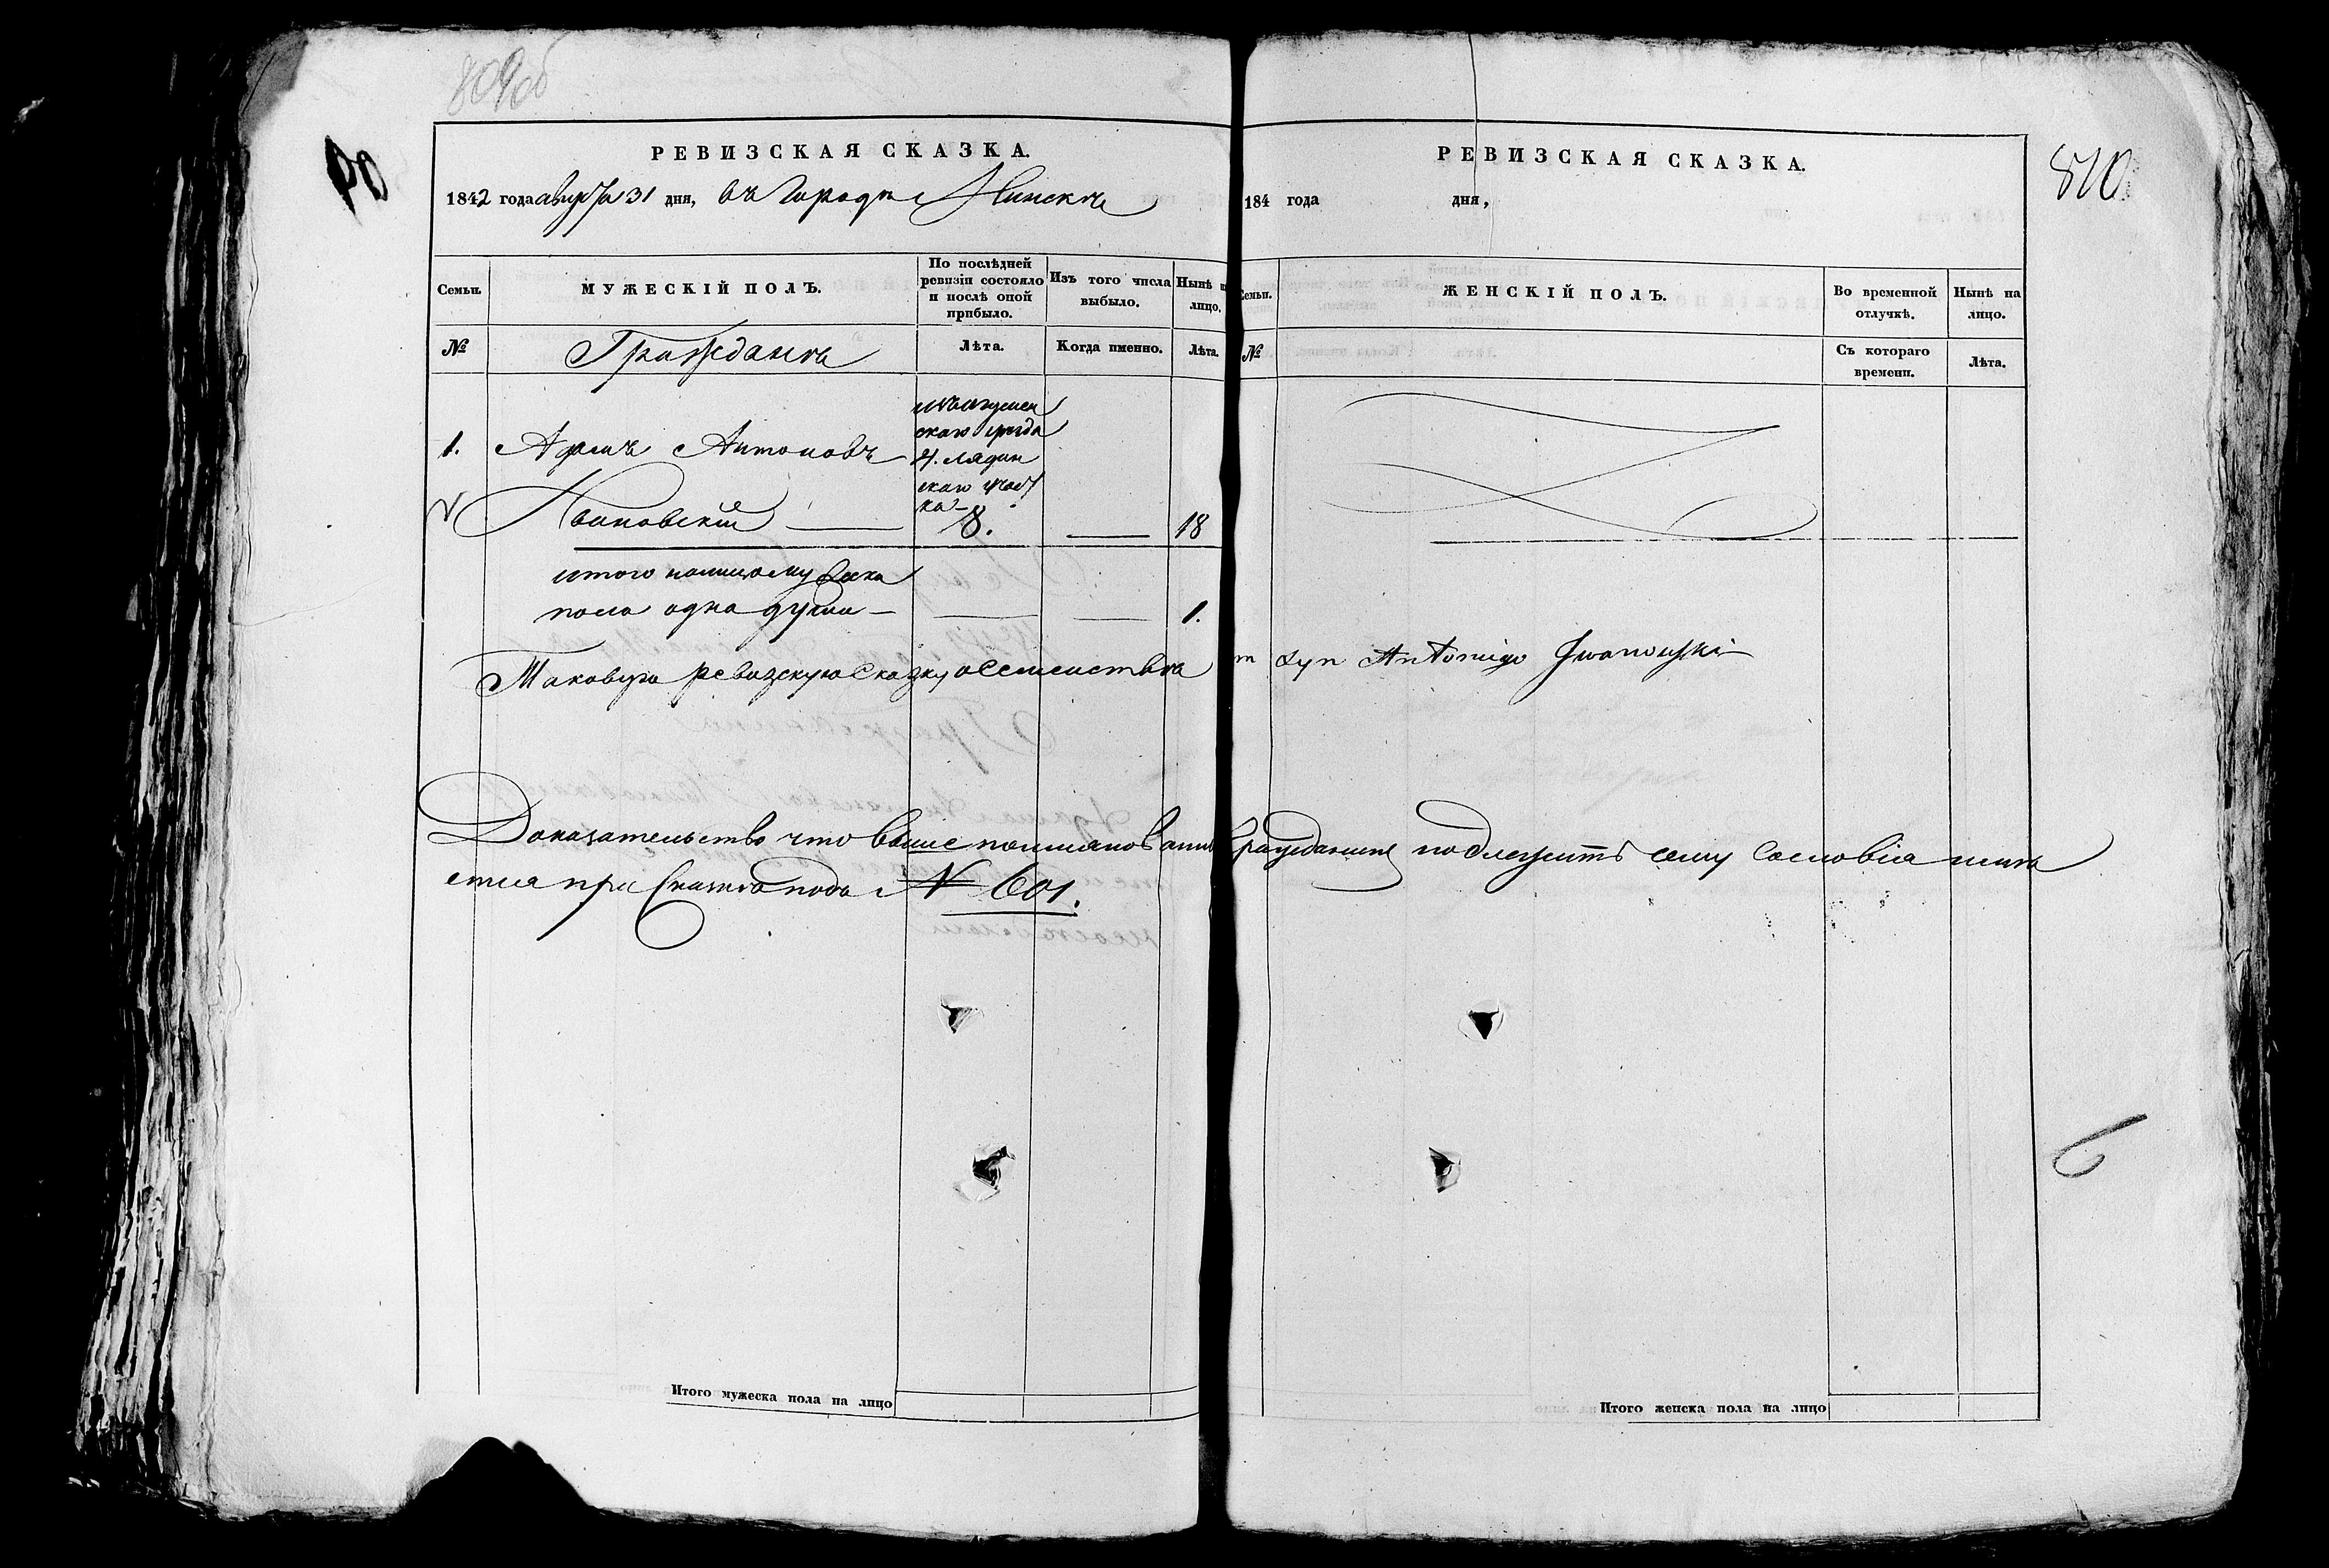 809об
РЕВИЗСКАЯ СКАЗКА.
1842 года августа 31 дня, въ городѣ Минскѣ
Семьи.
МУЖЕСКІЙ ПОЛЪ.
По послѣдней ревизіи состояло и послѣ оной прибыло.
Изъ того числа выбыло.
Нынѣ н лицо.
№
Граждане
Лѣта.
Когда именно.
Лѣта.
игуменскаго уѣзда
1. Адамъ Антоновъ
4. лядан
скаго участка
Ивановскій
8.
18
итого
мужеска
пола одна душа
1.
Таковую ревизскую сказку о семействѣ
Доказательство что выше поимянованн
етса при
подъ № 601.
Итого мужеска пола на лицо
810
РЕВИЗСКАЯ СКАЗКА.
184 года дня,
Семьи.
ЖЕНСКІЙ ПОЛЪ.
Во временной отлучкѣ.
Нынѣ на лицо.
№
Съ котораго времени.
Лѣта.
syn Antoniego Iwanowski
гражданинъ подлежитъ сему сословію имѣ
6
Итого женска пола на лицо